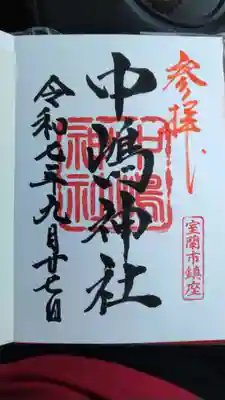 参拝
室蘭市鎮座
中嶋神社
中嶋神社
令和七年九月廿七日